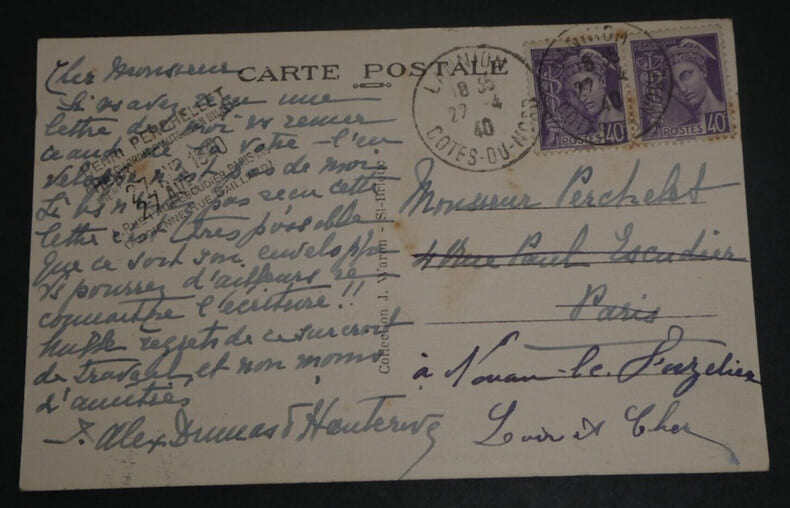 CARTE POSTALE
Cher Monsieur
Si vs avez reçu une
lettre de moi vs remer
velo de moi
Si vs n' pas reçu cette
lettre possible
Que ce soit son enveloppe
Vs pourrez d'ailleurs re
connaitre l'écriture!!
regrets de ce surcroit
de travail, et non moins
d'amitiés
Alex Dumas d'Hauterive
HENRI PERCHELLET
27 AVR 1940
Collection J. Waron - St-Brieuc
LANNION
18 35
27 - 4
40
COTES-DU-NORD
POSTES 40
POSTES 40
Monsieur Perchellet
4 Rue Paul Escudier
Paris
à Nouan-le-Fuzelier
Loir et Cher